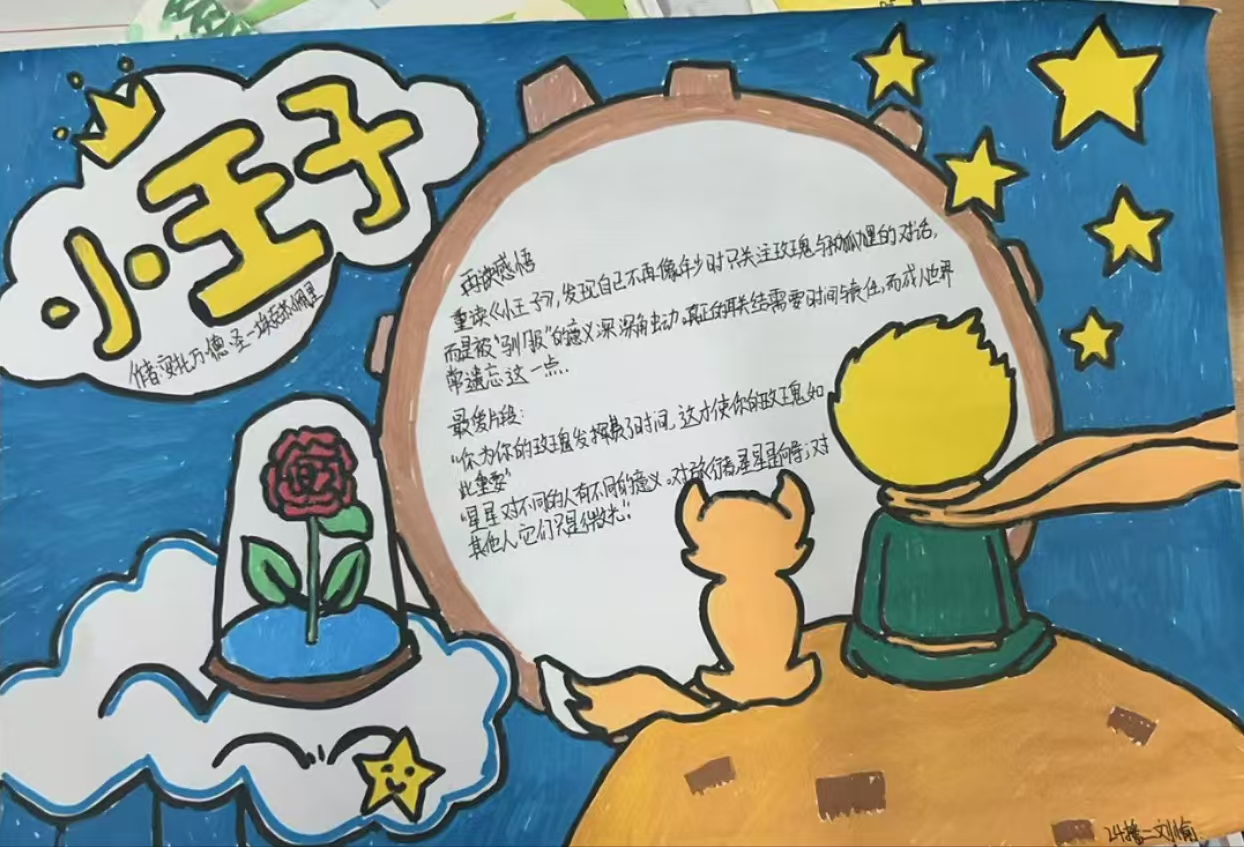 小王子
作者:安托万·德·圣-埃克苏佩里
再读感悟
重读《小王子》,发现自己不再像年少时只关注玫瑰与狐狸的对话,
而是被"驯服"的意义深深触动。真正的联结需要时间与责任,而成人世界
常遗忘这一点.
最爱片段:
"你为你的玫瑰花费了时间,这才使你的玫瑰如
此重要"
"星星对不同的人有不同的意义。对旅行者,星星是向导;对
其他人,它们只是微光."
24 二刘愉